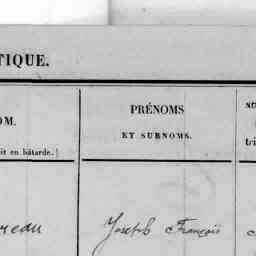 TIQUE.
OM.
PRÉNOMS
ET SURNOMS.
it en bâtarde.)
tri
Joseph François